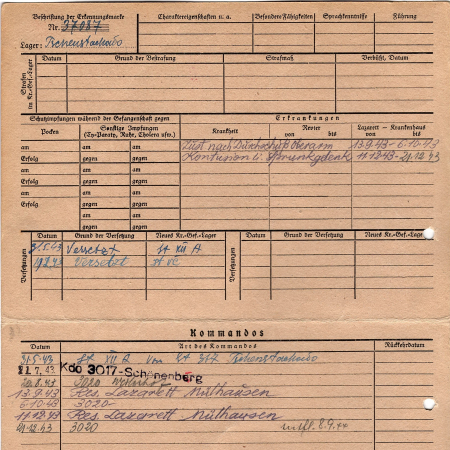 Beschriftung der Erkennungsmarke
Nr. 37087
Lager: Tschenstochau
Charaktereigenschaften u. a.
Besondere Fähigkeiten
Sprachkenntnisse
Führung
Strafen im Kr.-Gef.-Lager
Datum
Grund der Bestrafung
Strafmaß
Verbüßt, Datum
Schutzimpfungen während der Gefangenschaft gegen
Erkrankungen
Pocken
Sonstige Impfungen
(Ty-Paraty, Ruhr, Cholera usw.)
Krankheit
Revier
von bis
Lazarett – Krankenhaus
von bis
am am
gegen
Zust. nach Durchschuß Oberarm 13.9.43-6.10.43
Erfolg gegen
Kontusion li. Sprunggelenk 11.12.43-21.12.43
am am
Erfolg gegen
am am
Erfolg gegen
am
gegen
am
gegen
Versetzungen
Datum
Grund der Versetzung
Neues Kr.-Gef.-Lager
Datum
Grund der Versetzung
Neues Kr.-Gef.-Lager
31.5.43 Versetzt St XII A
Versetzt St VC
Kommandos
Datum
Art des Kommandos
Rückkehrdatum
31.5.43 St XII A von St 367 Tschenstochau
21.7.43 Kdo 3017-Schönenberg
3020
13.9.43 Res. Lazarett Mülhausen
6.10.43 3020
11.12.43 Res. Lazarett Mülhausen
21.12.43 3020 8.9.44